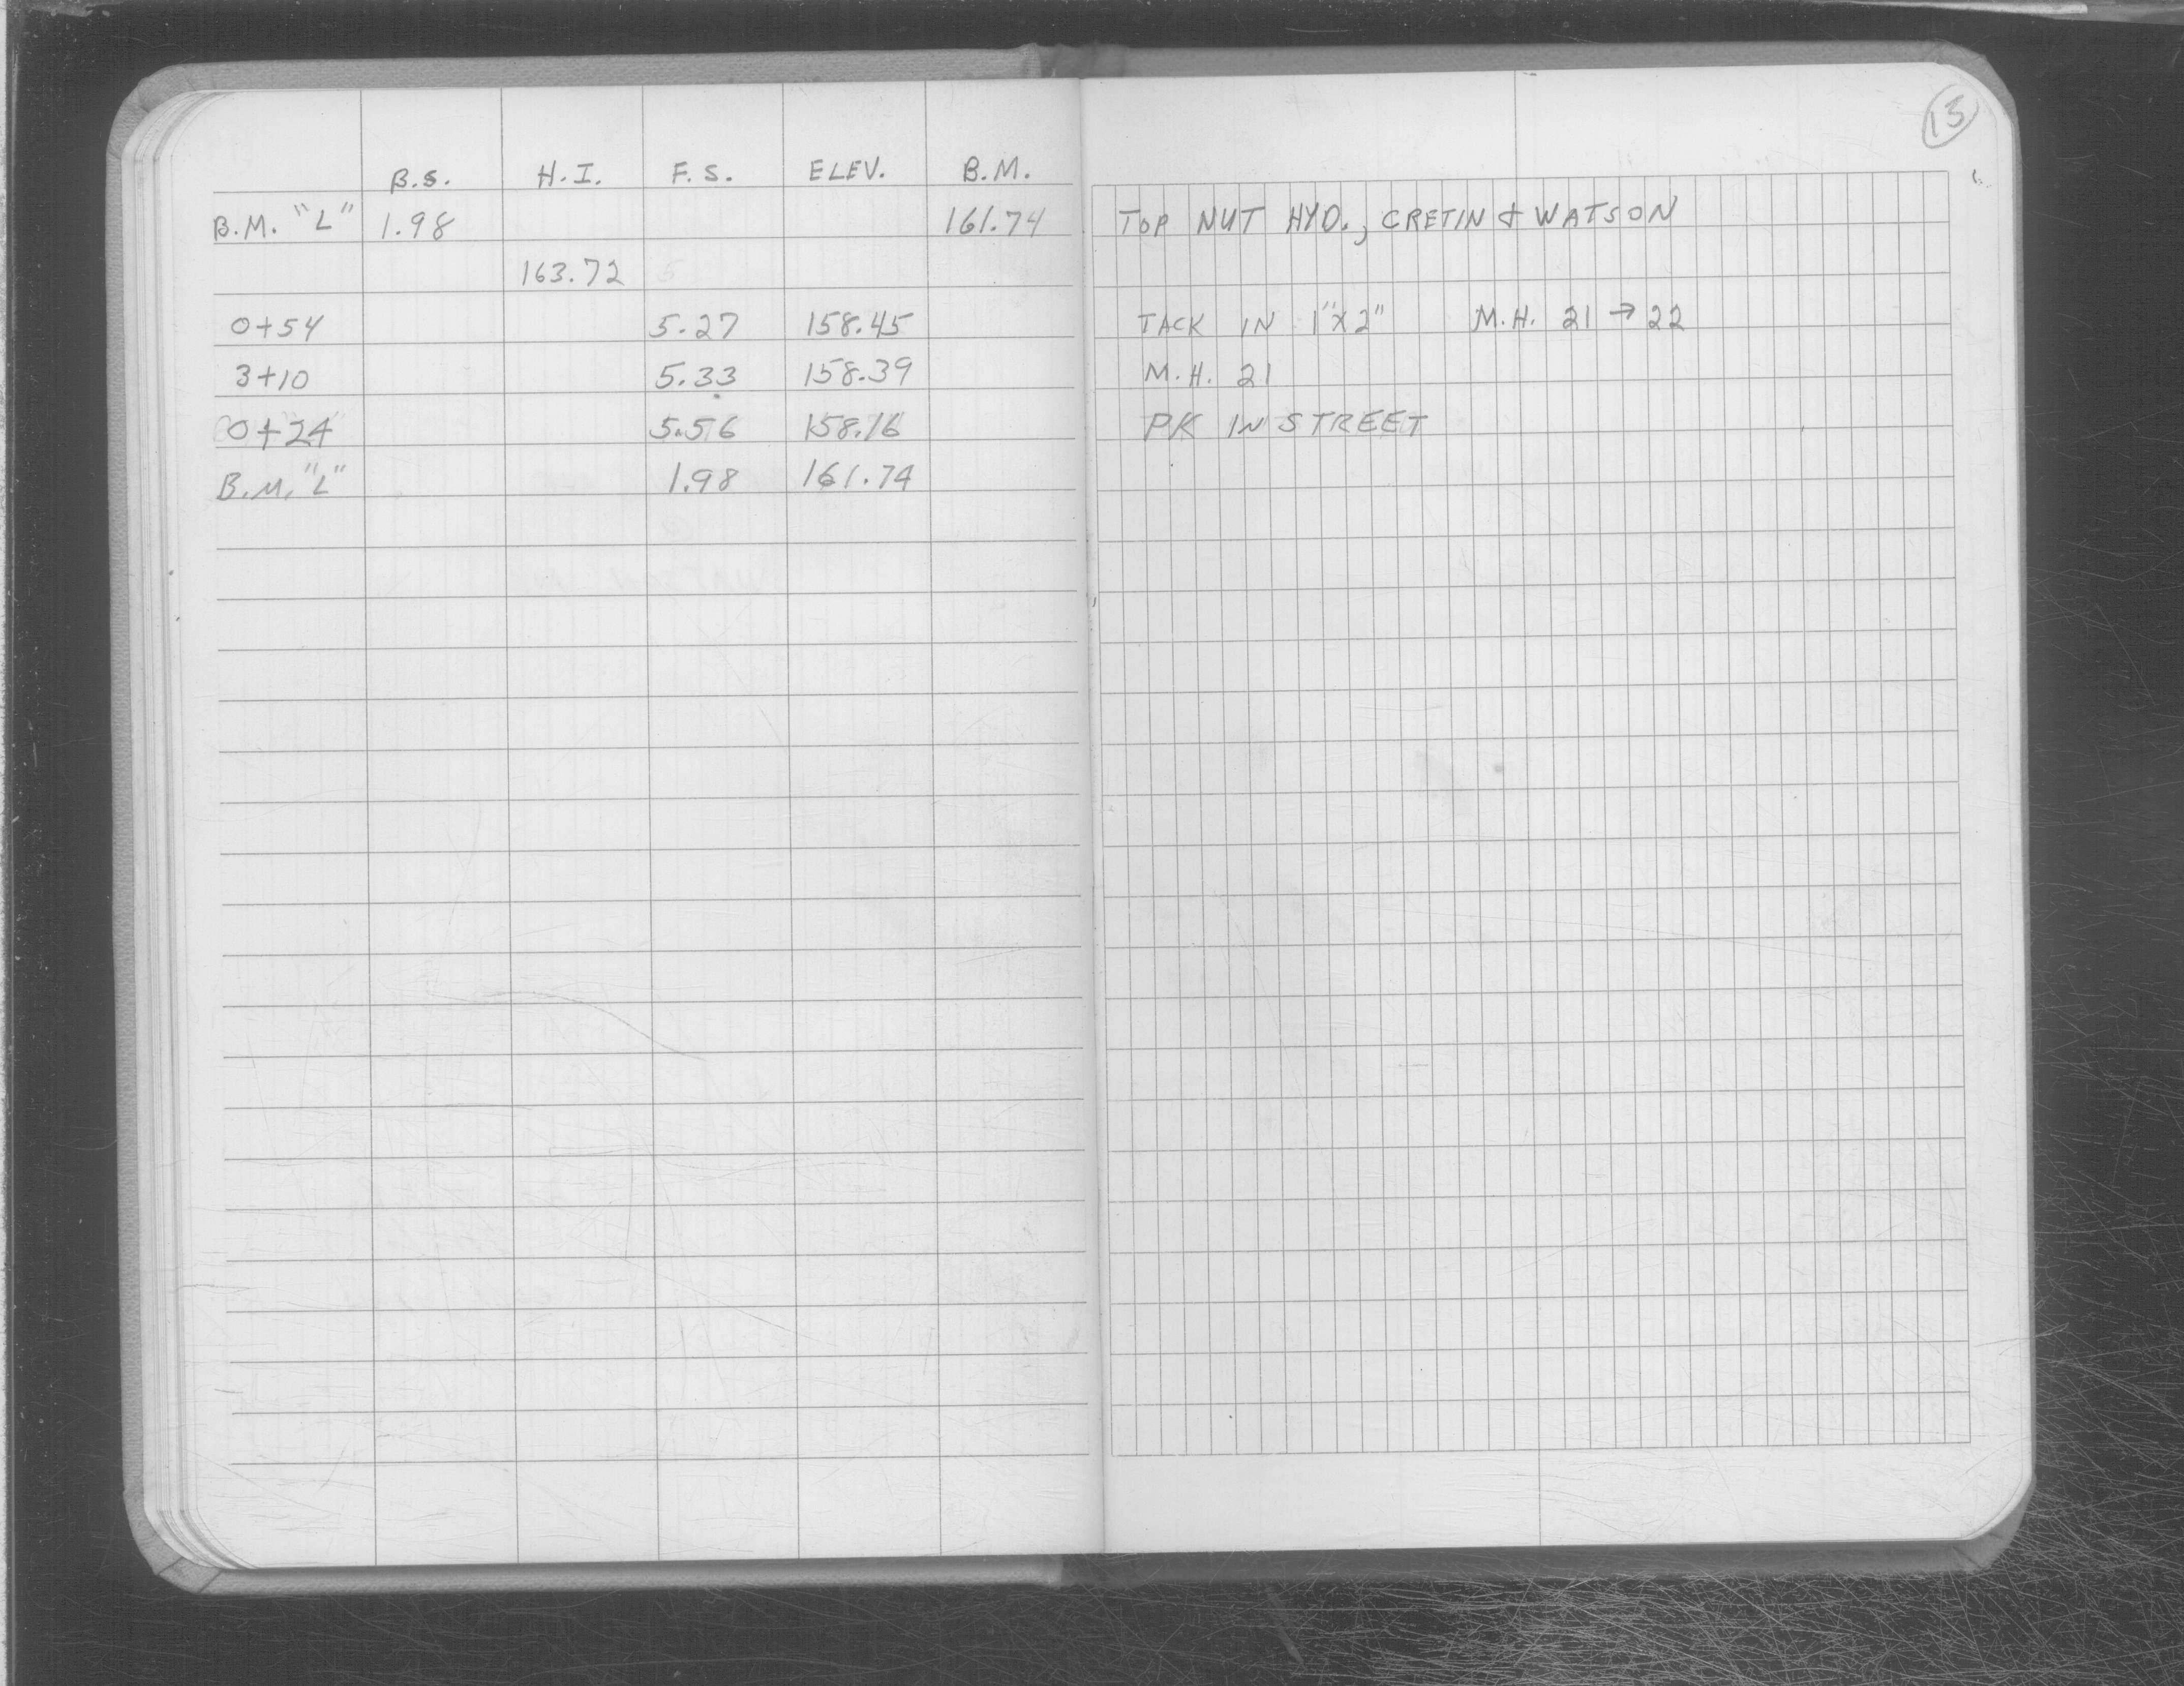 13
B.S. H.I. F.S. ELEV. B.M.
B.M. "L" 1.98 161.74 TOP NUT HYD., CRETIN & WATSON
163.72
0+54 5.27 158.45 TACK IN 1"X2" M.H. 21 → 22
3+10 5.33 158.39 M.H. 21
0+24 5.56 158.16 PK IN STREET
B.M. "L" 1.98 161.74